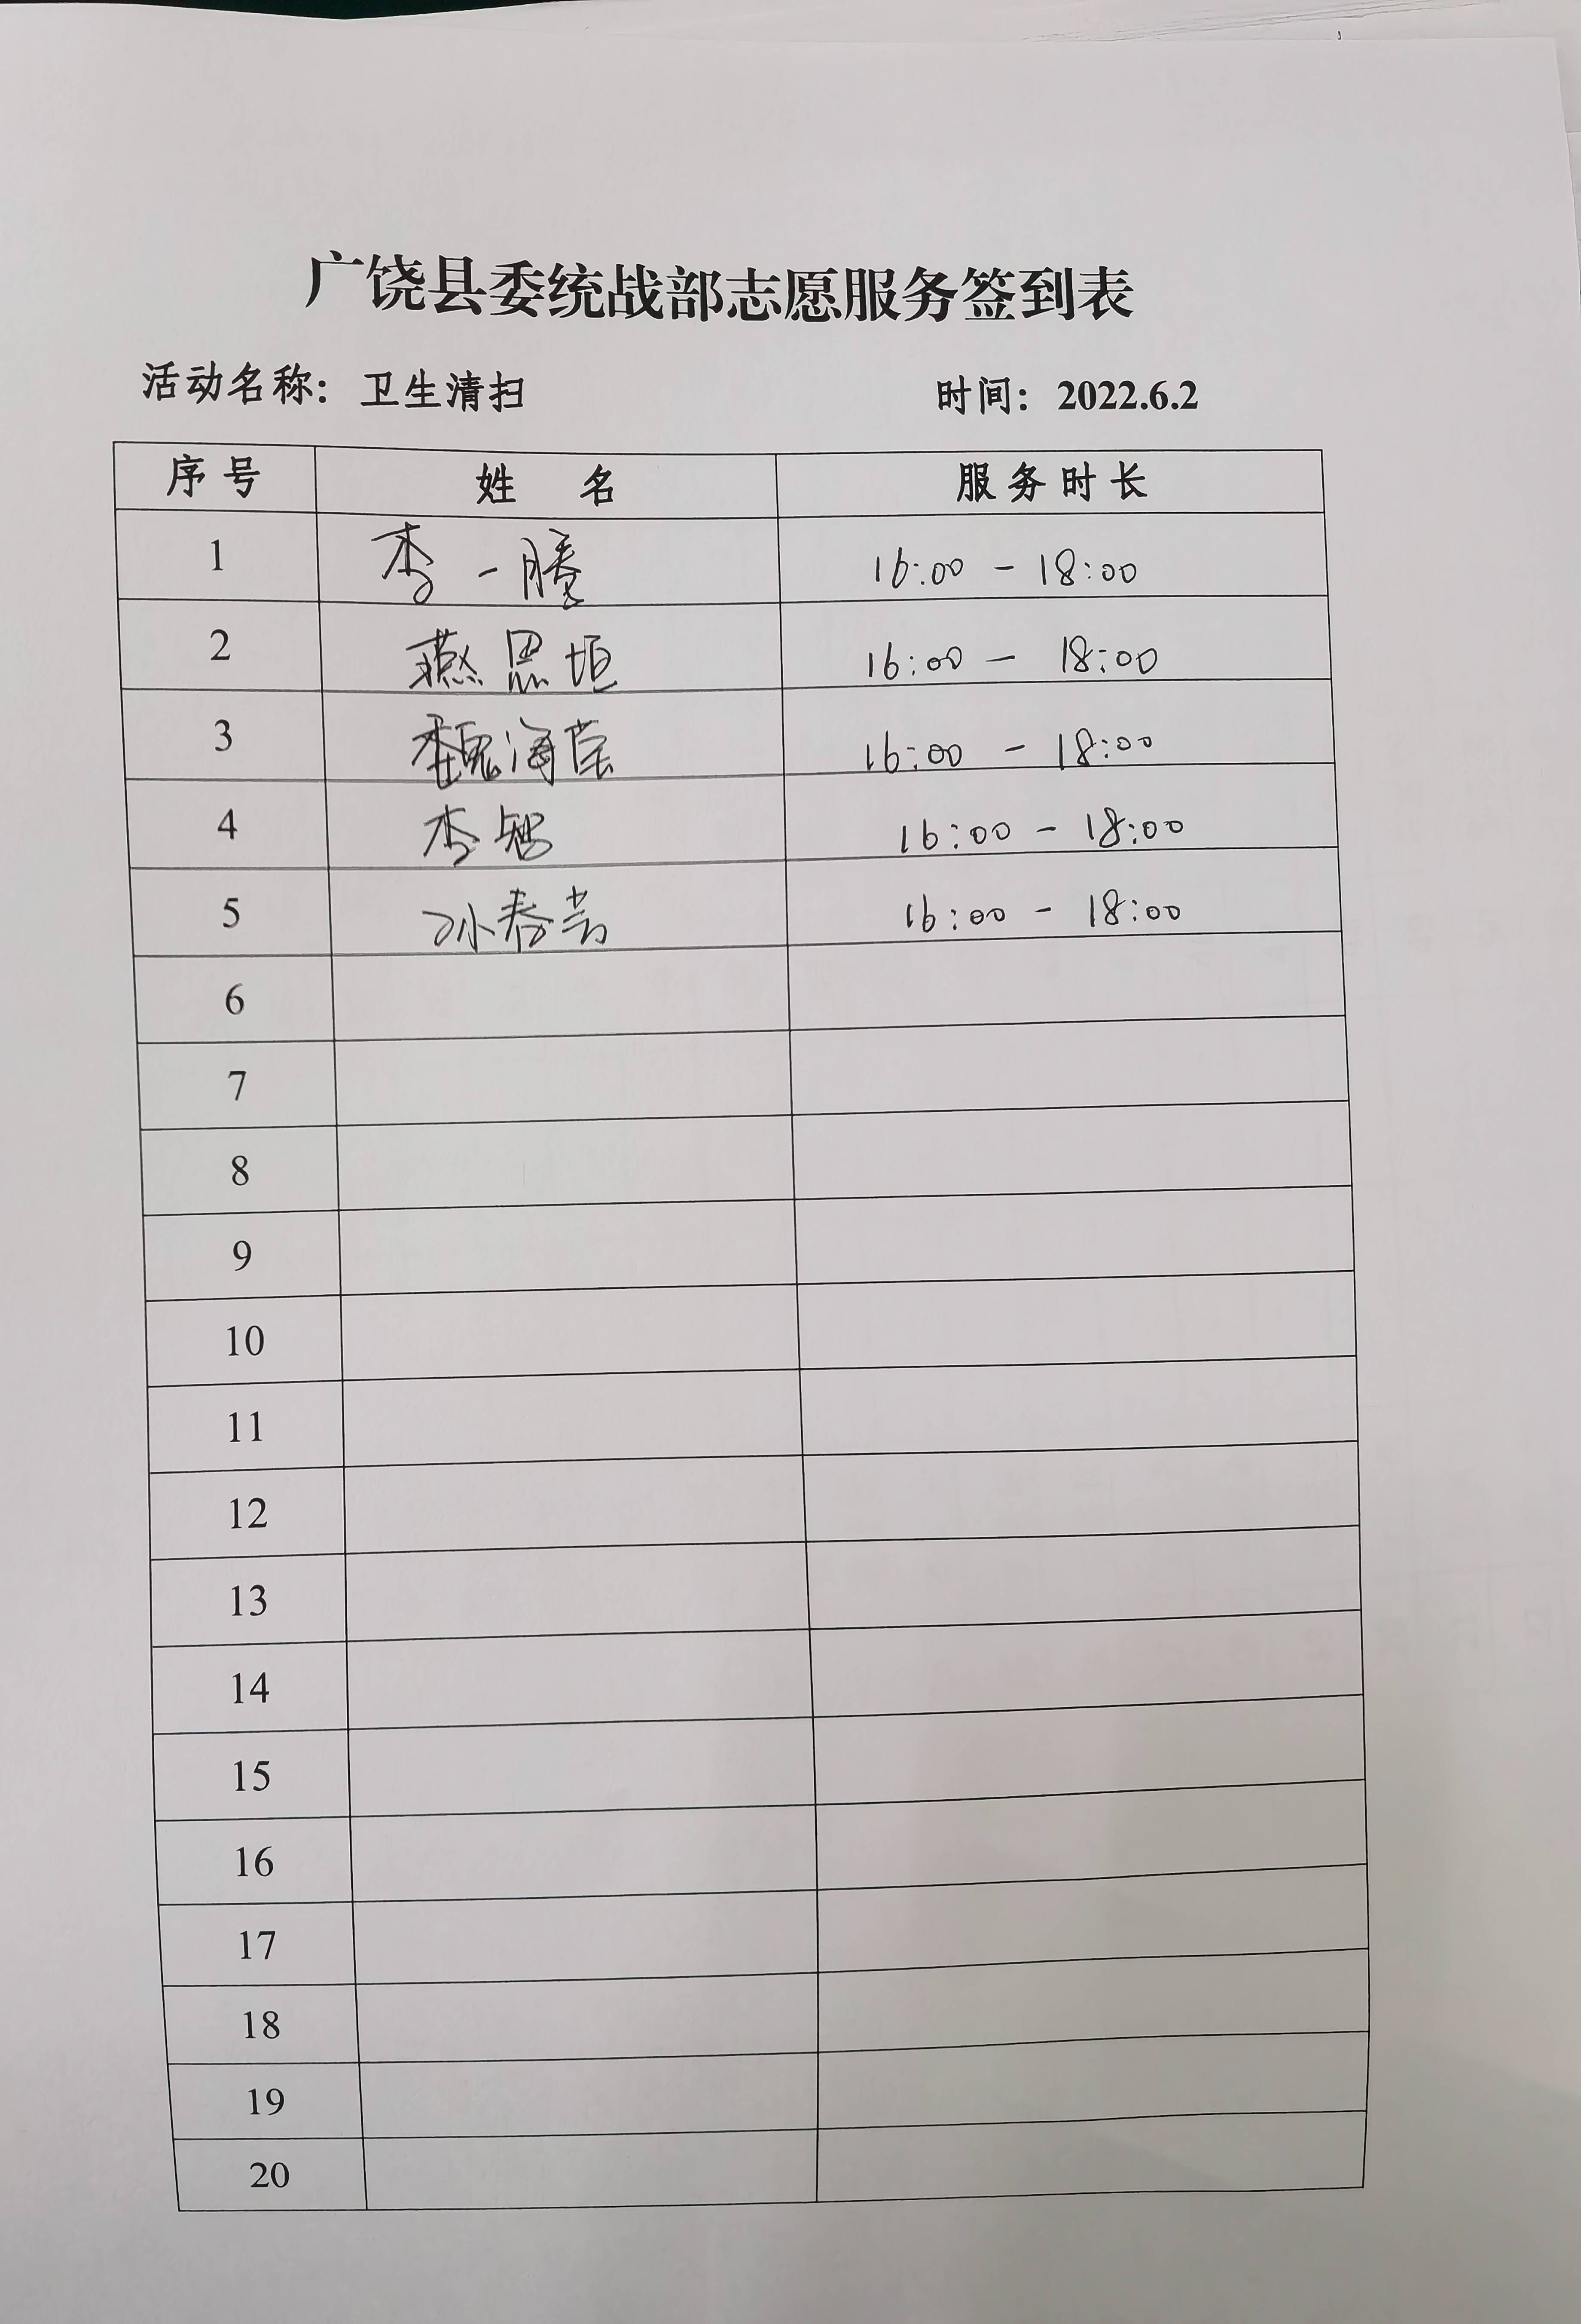 广饶县委统战部志愿服务签到表
活动名称：卫生清扫 时间：2022.6.2
序号 姓 名 服务时长
1 李一腾 16:00 - 18:00
2 燕思垣 16:00 - 18:00
3 魏海莹 16:00 - 18:00
4 李智 16:00 - 18:00
5 孙春芳 16:00 - 18:00
6
7
8
9
10
11
12
13
14
15
16
17
18
19
20